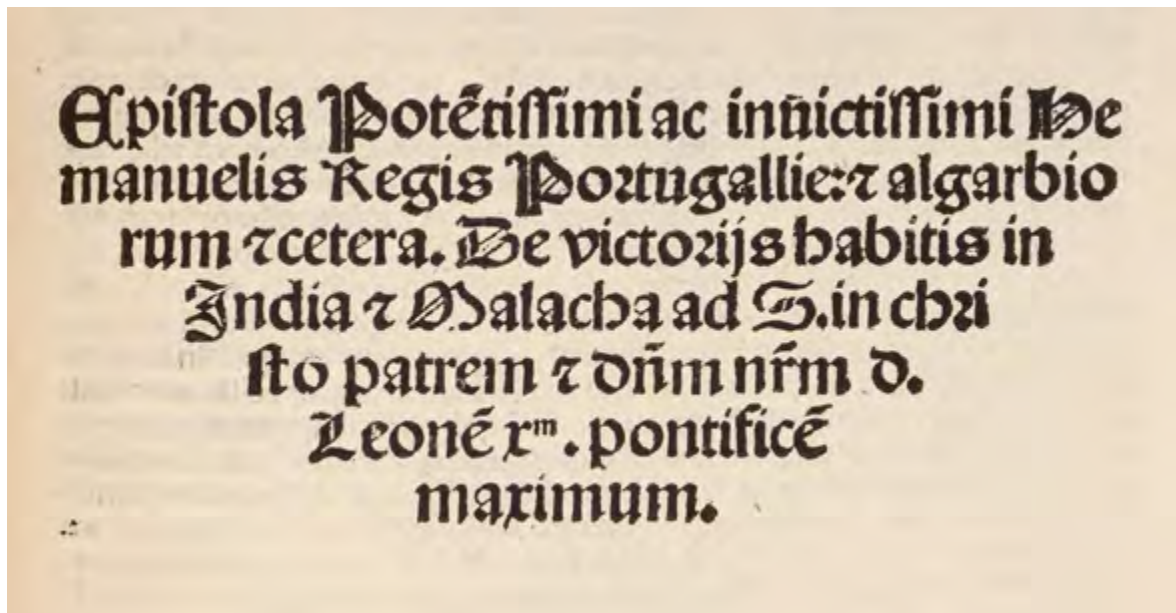 Epiſtola Potẽtiſſimi ac inũictiſſimi He
manuelis Regis Portugallie:⁊ algarbio
rum ⁊cetera. De victorijs habitis in
India ⁊ Malacha ad S.in chri
ſto patrem ⁊ dñm nr̃m d.
Leonẽ xᵐ. pontificẽ
maximum.